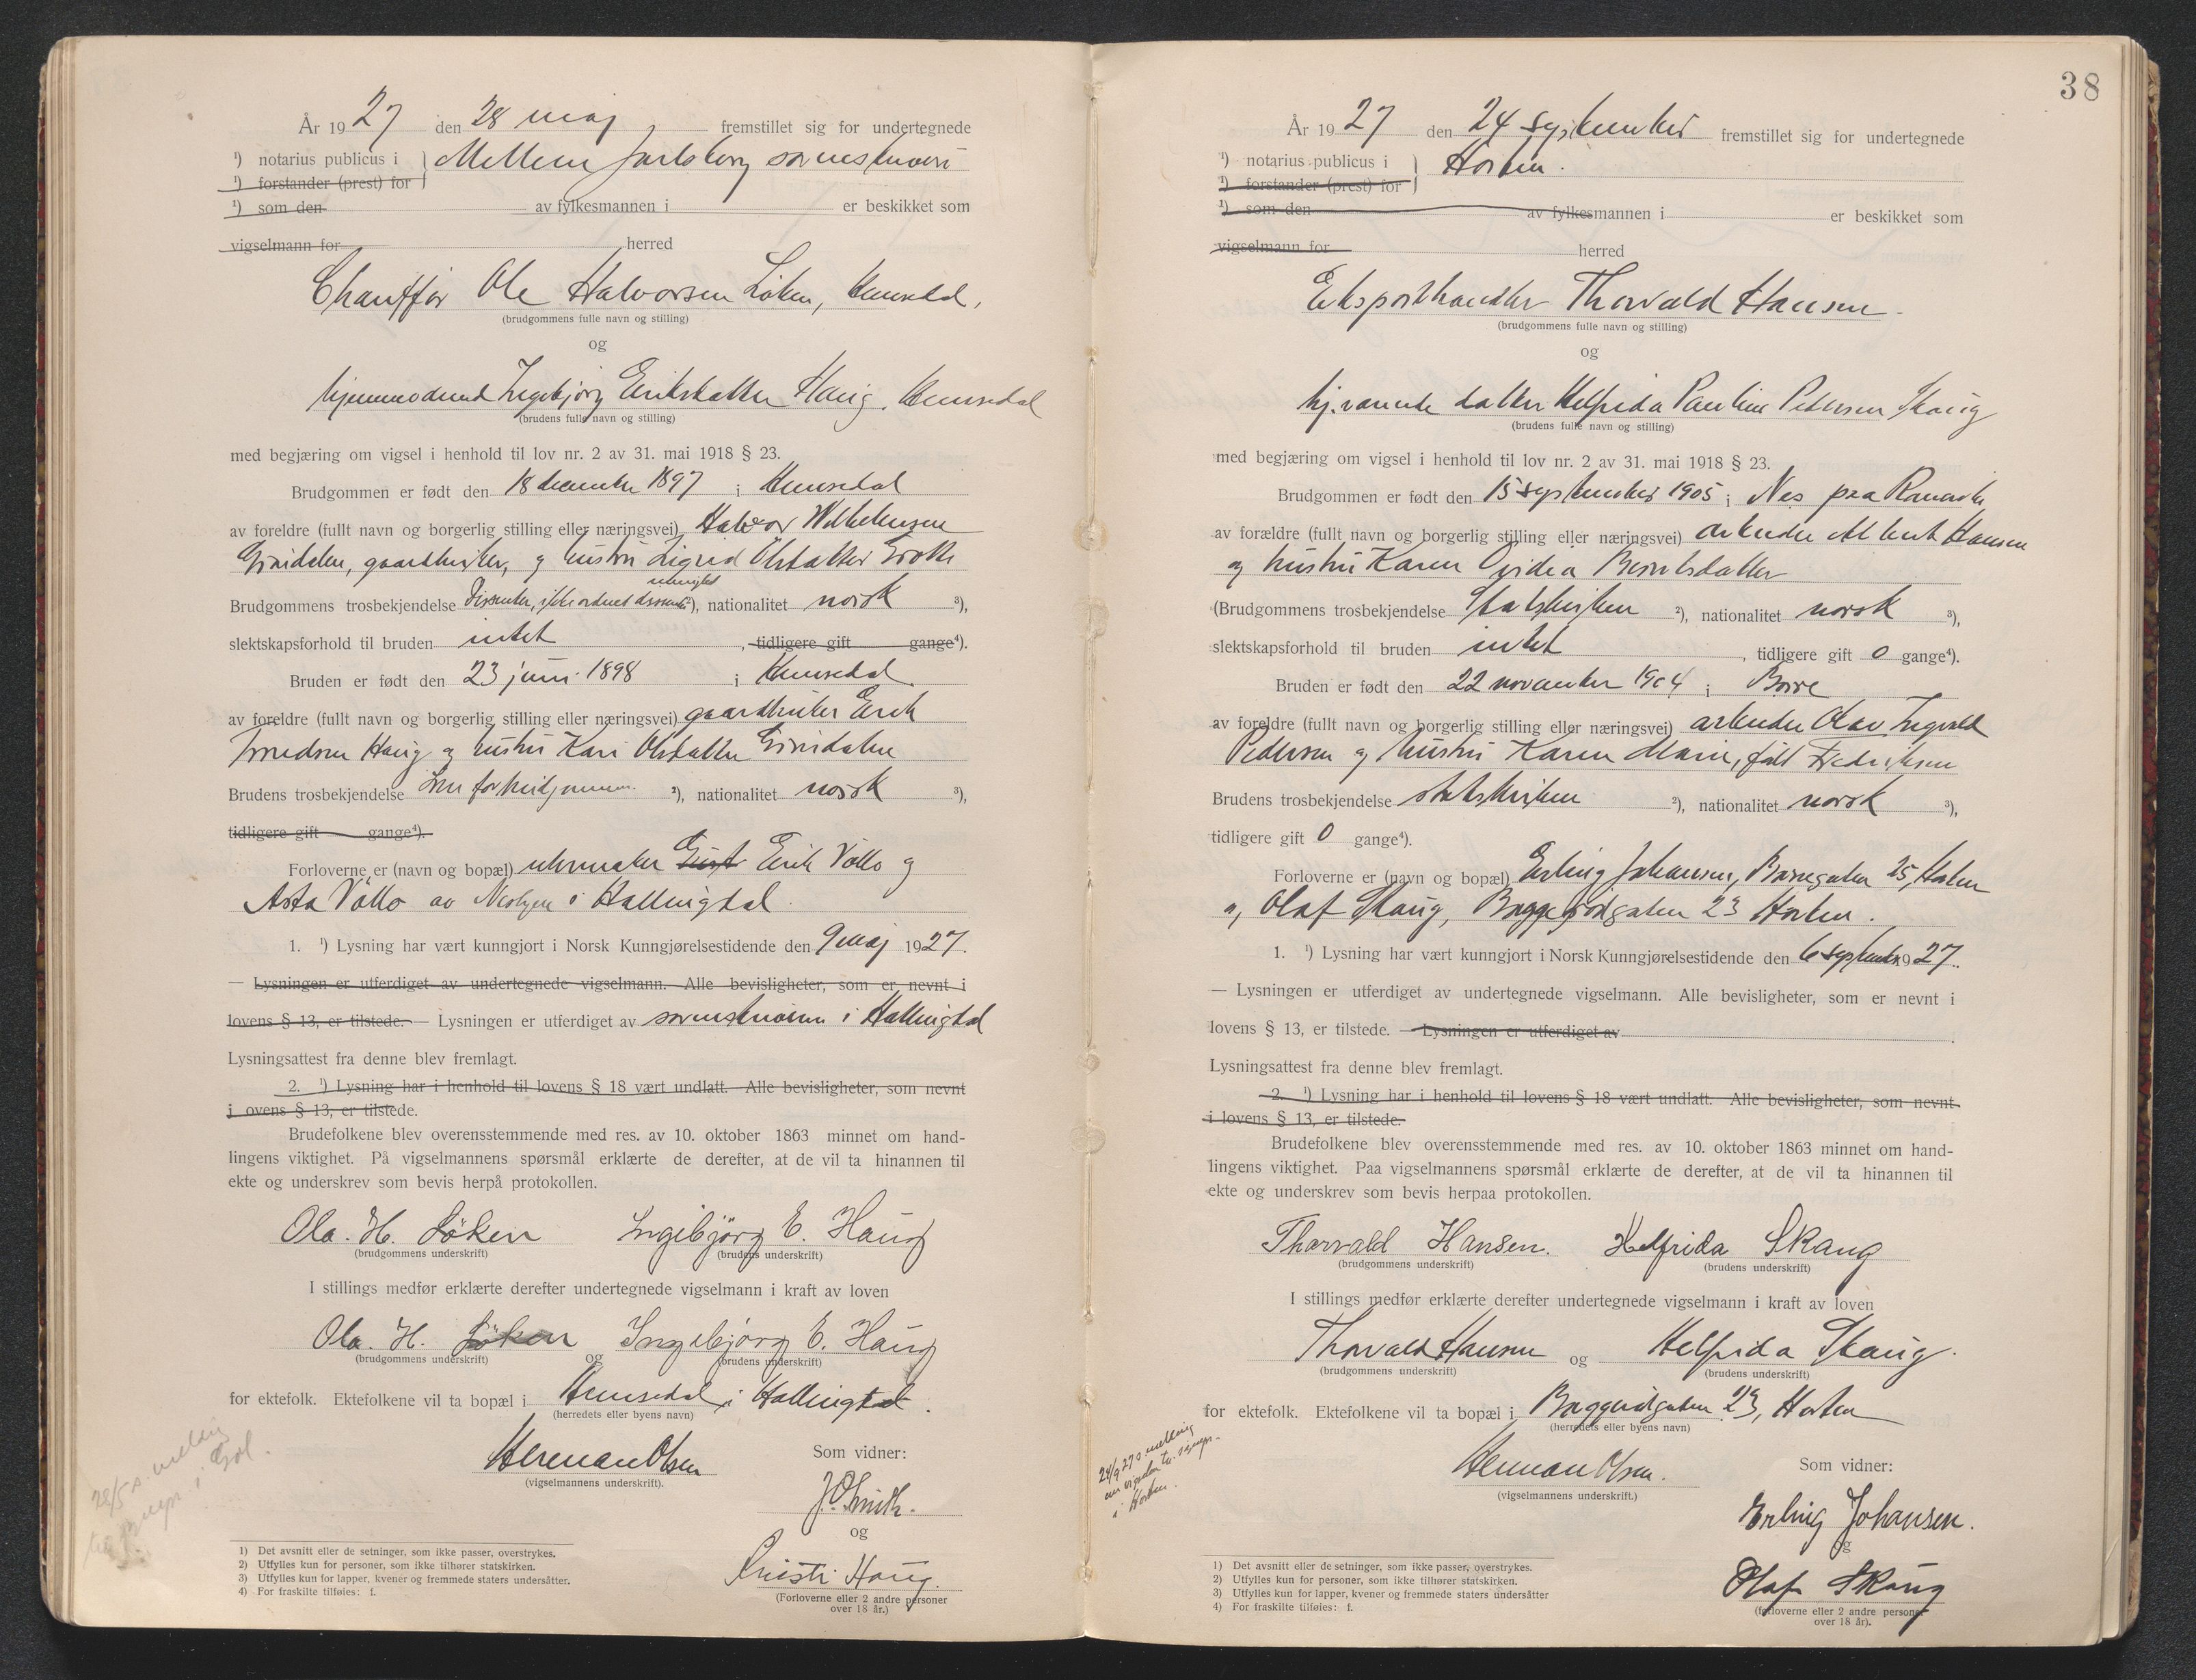 År 1927 den 28 maj fremstillet sig for undertegnede
¹) notarius publicus i Mellem Jarlsberg sorenskriveri
¹) forstander (prest) for
¹) som den av fylkesmannen i er beskikket som
vigselmann for herred
Chauffør Ole Halvorsen Løken, Hemsedal,
(brudgommens fulle navn og stilling)
og
Ingebjørg Eriksdatter Haug, Hemsedal
(brudens fulle navn og stilling)
med begjæring om vigsel i henhold til lov nr. 2 av 31. mai 1918 § 23.
Brudgommen er født den 18 december 1897 i Hemsedal
av foreldre (fullt navn og borgerlig stilling eller næringsvei) Halvor Wilhelmsen
gaardbruker, og hustru Sigrid Olsdatter Grøthe
Brudgommens trosbekjendelse Dissenter, ikke ordnet dissenter ²), nationalitet norsk ³),
slektskapsforhold til bruden intet , tidligere gift gange⁴).
Bruden er født den 23 juni 1898 i Hemsedal
av foreldre (fullt navn og borgerlig stilling eller næringsvei) gaardbruker Erik
Haug og hustru Kari Olsdatter
Brudens trosbekjendelse som for brudgommen ²), nationalitet norsk ³),
tidligere gift gange⁴).
Forloverne er (navn og bopæl) uhrmaker Erik Vøllo og
Asta Vøllo av Nesbyen i Hallingdal.
1. ¹) Lysning har vært kunngjort i Norsk Kunngjørelsestidende den 9 maj 1927.
— Lysningen er utferdiget av undertegnede vigselmann. Alle bevisligheter, som er nevnt i
lovens § 13, er tilstede. — Lysningen er utferdiget av sorenskriveren i Hallingdal
Lysningsattest fra denne blev fremlagt.
2. ¹) Lysning har i henhold til lovens § 18 vært undlatt. Alle bevisligheter, som nevnt
i ovens § 13, er tilstede.
Brudefolkene blev overensstemmende med res. av 10. oktober 1863 minnet om hand-
lingens viktighet. På vigselmannens spørsmål erklærte de derefter, at de vil ta hinannen til
ekte og underskrev som bevis herpå protokollen.
Ola. H. Løken Ingebjörg E. Haug
(brudgommens underskrift) (brudens underskrift)
I stillings medfør erklærte derefter undertegnede vigselmann i kraft av loven
Ola. H. Løken og Ingebjørg E. Haug
(brudgommens underskrift) (brudens underskrift)
for ektefolk. Ektefolkene vil ta bopæl i Hemsedal i Hallingdal.
(herredets eller byens navn)
Herman Olsen
(vigselmannens underskrift).
Som vidner:
J. Smith.
og
Kristi Haug.
(Forloverne eller 2 andre personer
over 18 år.)
28/5 s. melding
i Gol.
1) Det avsnitt eller de setninger, som ikke passer, overstrykes.
2) Utfylles kun for personer, som ikke tilhører statskirken.
3) Utfylles kun for lapper, kvener og fremmede staters undersåtter.
4) For fraskilte tilføies: f.
38
År 1927 den 24 september fremstillet sig for undertegnede
¹) notarius publicus i Horten.
¹) forstander (prest) for
¹) som den av fylkesmannen i er beskikket som
vigselmann for herred
Eksporthandler Thorvald Hansen
(brudgommens fulle navn og stilling)
og
hj.værende datter Helfrida Pauline Pedersen Skaug
(brudens fulle navn og stilling)
med begjæring om vigsel i henhold til lov nr. 2 av 31. mai 1918 § 23.
Brudgommen er født den 15 september 1905 i Nes paa Romerike
av forældre (fullt navn og borgerlig stilling eller næringsvei) arbeider Albert Hansen
og hustru Karen Ovidia Berntsdatter
(Brudgommens trosbekjendelse Statskirken ²), nationalitet norsk ³),
slektskapsforhold til bruden intet , tidligere gift 0 gange⁴).
Bruden er født den 22 november 1904 i Borre
av foreldre (fullt navn og borgerlig stilling eller næringsvei) arbeider Olav Ingvald
Pedersen og hustru Karen Marie, født Fredriksen
Brudens trosbekjendelse statskirken ²), nationalitet norsk ³),
tidligere gift 0 gange⁴).
Forloverne er (navn og bopæl) Erling Johansen, Borregaten 25, Horten
og Olaf Skaug, Baggerødgaten 23 Horten.
1. ¹) Lysning har vært kunngjort i Norsk Kunngjørelsestidende den 6 september 1927.
— Lysningen er utferdiget av undertegnede vigselmann. Alle bevisligheter, som er nevnt i
lovens § 13, er tilstede. — Lysningen er utferdiget av
Lysningsattest fra denne blev fremlagt.
2. ¹) Lysning har i henhold til lovens § 18 vært undlatt. Alle bevisligheter, som nevnt
i lovens § 13, er tilstede.
Brudefolkene blev overensstemmende med res. av 10. oktober 1863 minnet om hand-
lingens viktighet. Paa vigselmannens spørsmål erklærte de derefter, at de vil ta hinannen til
ekte og underskrev som bevis herpaa protokollen.
Thorvald Hansen. Helfrida Skaug
(brudgommens underskrift) (brudens underskrift)
I stillings medfør erklærte derefter undertegnede vigselmann i kraft av loven
Thorvald Hansen og Helfrida Skaug.
(brudgommens underskrift) (brudens underskrift)
for ektefolk. Ektefolkene vil ta bopæl i Baggerødgaten 23, Horten
(herredets eller byens navn)
24/9 27 s. melding
om vigselen til sognepr.
i Horten.
Herman Olsen.
(vigselmannens underskrift.)
Som vidner:
Erling Johansen.
og
Olaf Skaug
(forloverne eller 2 andre personer
over 18 år).
1) Det avsnitt eller de setninger, som ikke passer, overstrykes.
2) Utfylles kun for personer, som ikke tilhører statskirken.
3) Utfylles kun for lapper, kvener og fremmede staters undersåtter
4) For fraskilte tilføies: f.